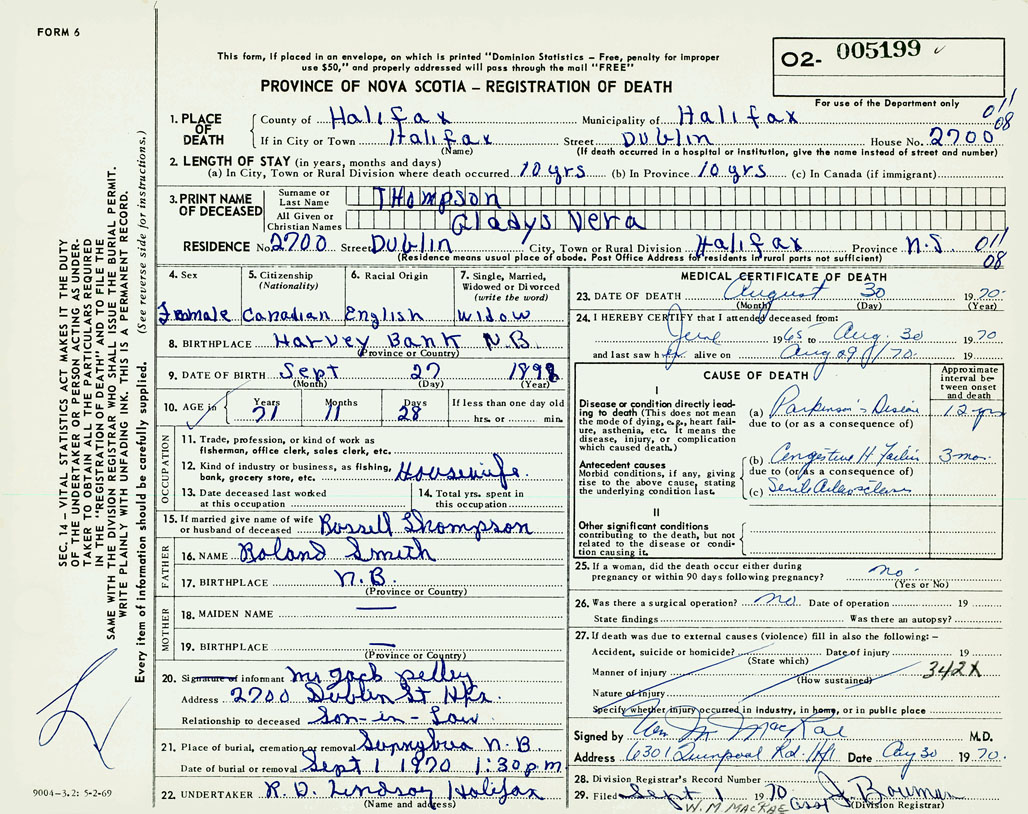 FORM 6
This form, if placed in an envelope, on which is printed "Dominion Statistics – Free, penalty for improper
use $50," and properly addressed will pass through the mail "FREE"
O2- 005199
PROVINCE OF NOVA SCOTIA – REGISTRATION OF DEATH
For use of the Department only
011
08
1. PLACE OF DEATH
County of Halifax Municipality of Halifax
If in City or Town Halifax Street Dublin House No. 2700
(Name) (If death occurred in a hospital or institution, give the name instead of street and number)
2. LENGTH OF STAY (in years, months and days)
(a) In City, Town or Rural Division where death occurred 10 yrs (b) In Province 10 yrs (c) In Canada (if immigrant)
3. PRINT NAME OF DECEASED
Surname or Last Name THompson
All Given or Christian Names Gladys Vera
RESIDENCE No. 2700 Street Dublin City, Town or Rural Division Halifax Province N.S. 011
(Residence means usual place of abode. Post Office Address for residents in rural parts not sufficient) 08
4. Sex 5. Citizenship (Nationality) 6. Racial Origin 7. Single, Married, Widowed or Divorced (write the word)
Female Canadian English Widow
8. BIRTHPLACE Harvey Bank N.B.
(Province or Country)
9. DATE OF BIRTH Sept 27 1898
(Month) (Day) (Year)
10. AGE in Years Months Days If less than one day old
71 11 28 hrs. or min.
OCCUPATION
11. Trade, profession, or kind of work as
fisherman, office clerk, sales clerk, etc.
12. Kind of industry or business, as fishing,
bank, grocery store, etc. Housewife
13. Date deceased last worked at this occupation
14. Total yrs. spent in this occupation
15. If married give name of wife
or husband of deceased Russell Thompson
FATHER
16. NAME Roland Smith
17. BIRTHPLACE N.B.
(Province or Country)
MOTHER
18. MAIDEN NAME —
19. BIRTHPLACE —
(Province or Country)
20. Signature of informant Mr Jack Pelley
Address 2700 Dublin St Hfx
Relationship to deceased Son-in-Law
21. Place of burial, cremation or removal N.B.
Date of burial or removal Sept 1 1970 1:30 pm
22. UNDERTAKER R.D. Lindsay Halifax
(Name and address)
MEDICAL CERTIFICATE OF DEATH
23. DATE OF DEATH August 30 1970
(Month) (Day) (Year)
24. I HEREBY CERTIFY that I attended deceased from:
June 1965 to Aug 30 1970
and last saw her alive on Aug 29/70 19
CAUSE OF DEATH
Approximate interval between onset and death
I
Disease or condition directly leading
to death (This does not mean
the mode of dying, e.g., heart failure,
asthenia, etc. It means the
disease, injury, or complication
which caused death.)
(a) Parkinson's Disease 12 yrs
due to (or as a consequence of)
Antecedent causes
Morbid conditions, if any, giving
rise to the above cause, stating
the underlying condition last.
(b) Congestive H. Failure 3 mos.
due to (or as a consequence of)
(c) Senile Arteriosclerosis
II
Other significant conditions
contributing to the death, but not
related to the disease or condition
causing it.
25. If a woman, did the death occur either during
pregnancy or within 90 days following pregnancy? no
(Yes or No)
26. Was there a surgical operation? no Date of operation 19
State findings Was there an autopsy?
27. If death was due to external causes (violence) fill in also the following: –
Accident, suicide or homicide? Date of injury 19
(State which)
Manner of injury 342X
(How sustained)
Nature of injury
Specify whether injury occurred in industry, in home, or in public place
Signed by Wm M MacRae M.D.
Address 6301 Quinpool Rd. Hfx Date Aug 30 1970.
28. Division Registrar's Record Number
29. Filed Sept 1 1970
(Division Registrar)
W. M. MACRAE
SEC. 14 – VITAL STATISTICS ACT MAKES IT THE DUTY
OF THE UNDERTAKER OR PERSON ACTING AS UNDERTAKER
TO OBTAIN ALL THE PARTICULARS REQUIRED
IN THE "REGISTRATION OF DEATH" AND TO FILE THE
SAME WITH THE DIVISION REGISTRAR WHO SHALL ISSUE THE BURIAL PERMIT.
WRITE PLAINLY WITH UNFADING INK. THIS IS A PERMANENT RECORD.
Every item of information should be carefully supplied. (See reverse side for instructions.)
9004-3.2: 5-2-69